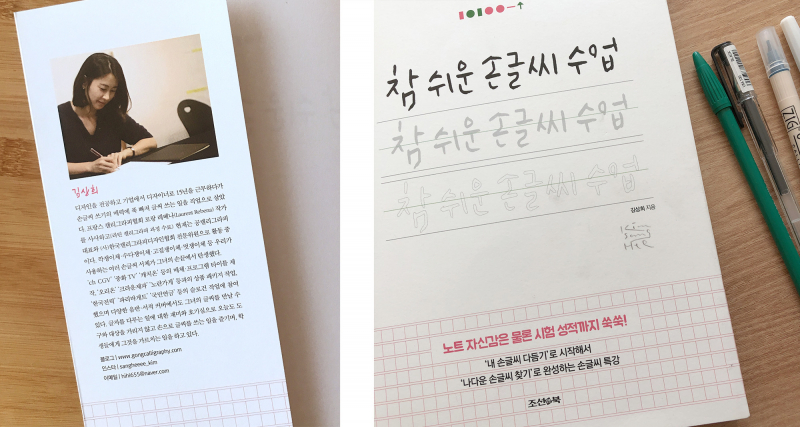 김상희
디자인을 전공하고 기업에서 디자이너로 15년을 근무하다가
손글씨 쓰기의 매력에 푹 빠져 글씨 쓰는 일을 직업으로 삼았
다. 프랑스 캘리그라피협회 로랑 레베나(Laurent Rebena) 작가
를 사사하고(라틴 캘리그라피 과정 수료) 현재는 공캘리그라피
대표와 (사)한국캘리그라피디자인협회 전문위원으로 활동 중
이다. 각생이체·수다쟁이체·고집쟁이체·멋쟁이체 등 우리가
사용하는 여러 손글씨 서체가 그녀의 손끝에서 탄생했다.
'cls CGV' '중화 TV' '캐치온' 등의 매체·프로그램 타이틀 제
작, '오리온' '크라운제과' '노란가게' 등과의 상품 패키지 작업,
'한국전력' '파리바게뜨' '국민연금' 등의 슬로건 작업에 참여
했으며 다양한 음반·서적 커버에서도 그녀의 글씨를 만날 수
있다. 글자를 다루는 일에 대한 재미와 호기심으로 오늘도 도
구와 대상을 가리지 않고 손으로 글씨를 쓰는 일을 즐기며, 학
생들에게 그것을 가르치는 일을 하고 있다.
블로그 | www.gongcalligraphy.com
인스타 | sangheeee_kim
이메일 | hihi655@naver.com
참 쉬운 손글씨 수업
참 쉬운 손글씨 수업
참 쉬운 손글씨 수업
김상희 지음
노트 자신감은 물론 시험 성적까지 쑥쑥!
'내 손글씨 다듬기'로 시작해서
'나다운 손글씨 찾기'로 완성하는 손글씨 특강
조선북
ZIG